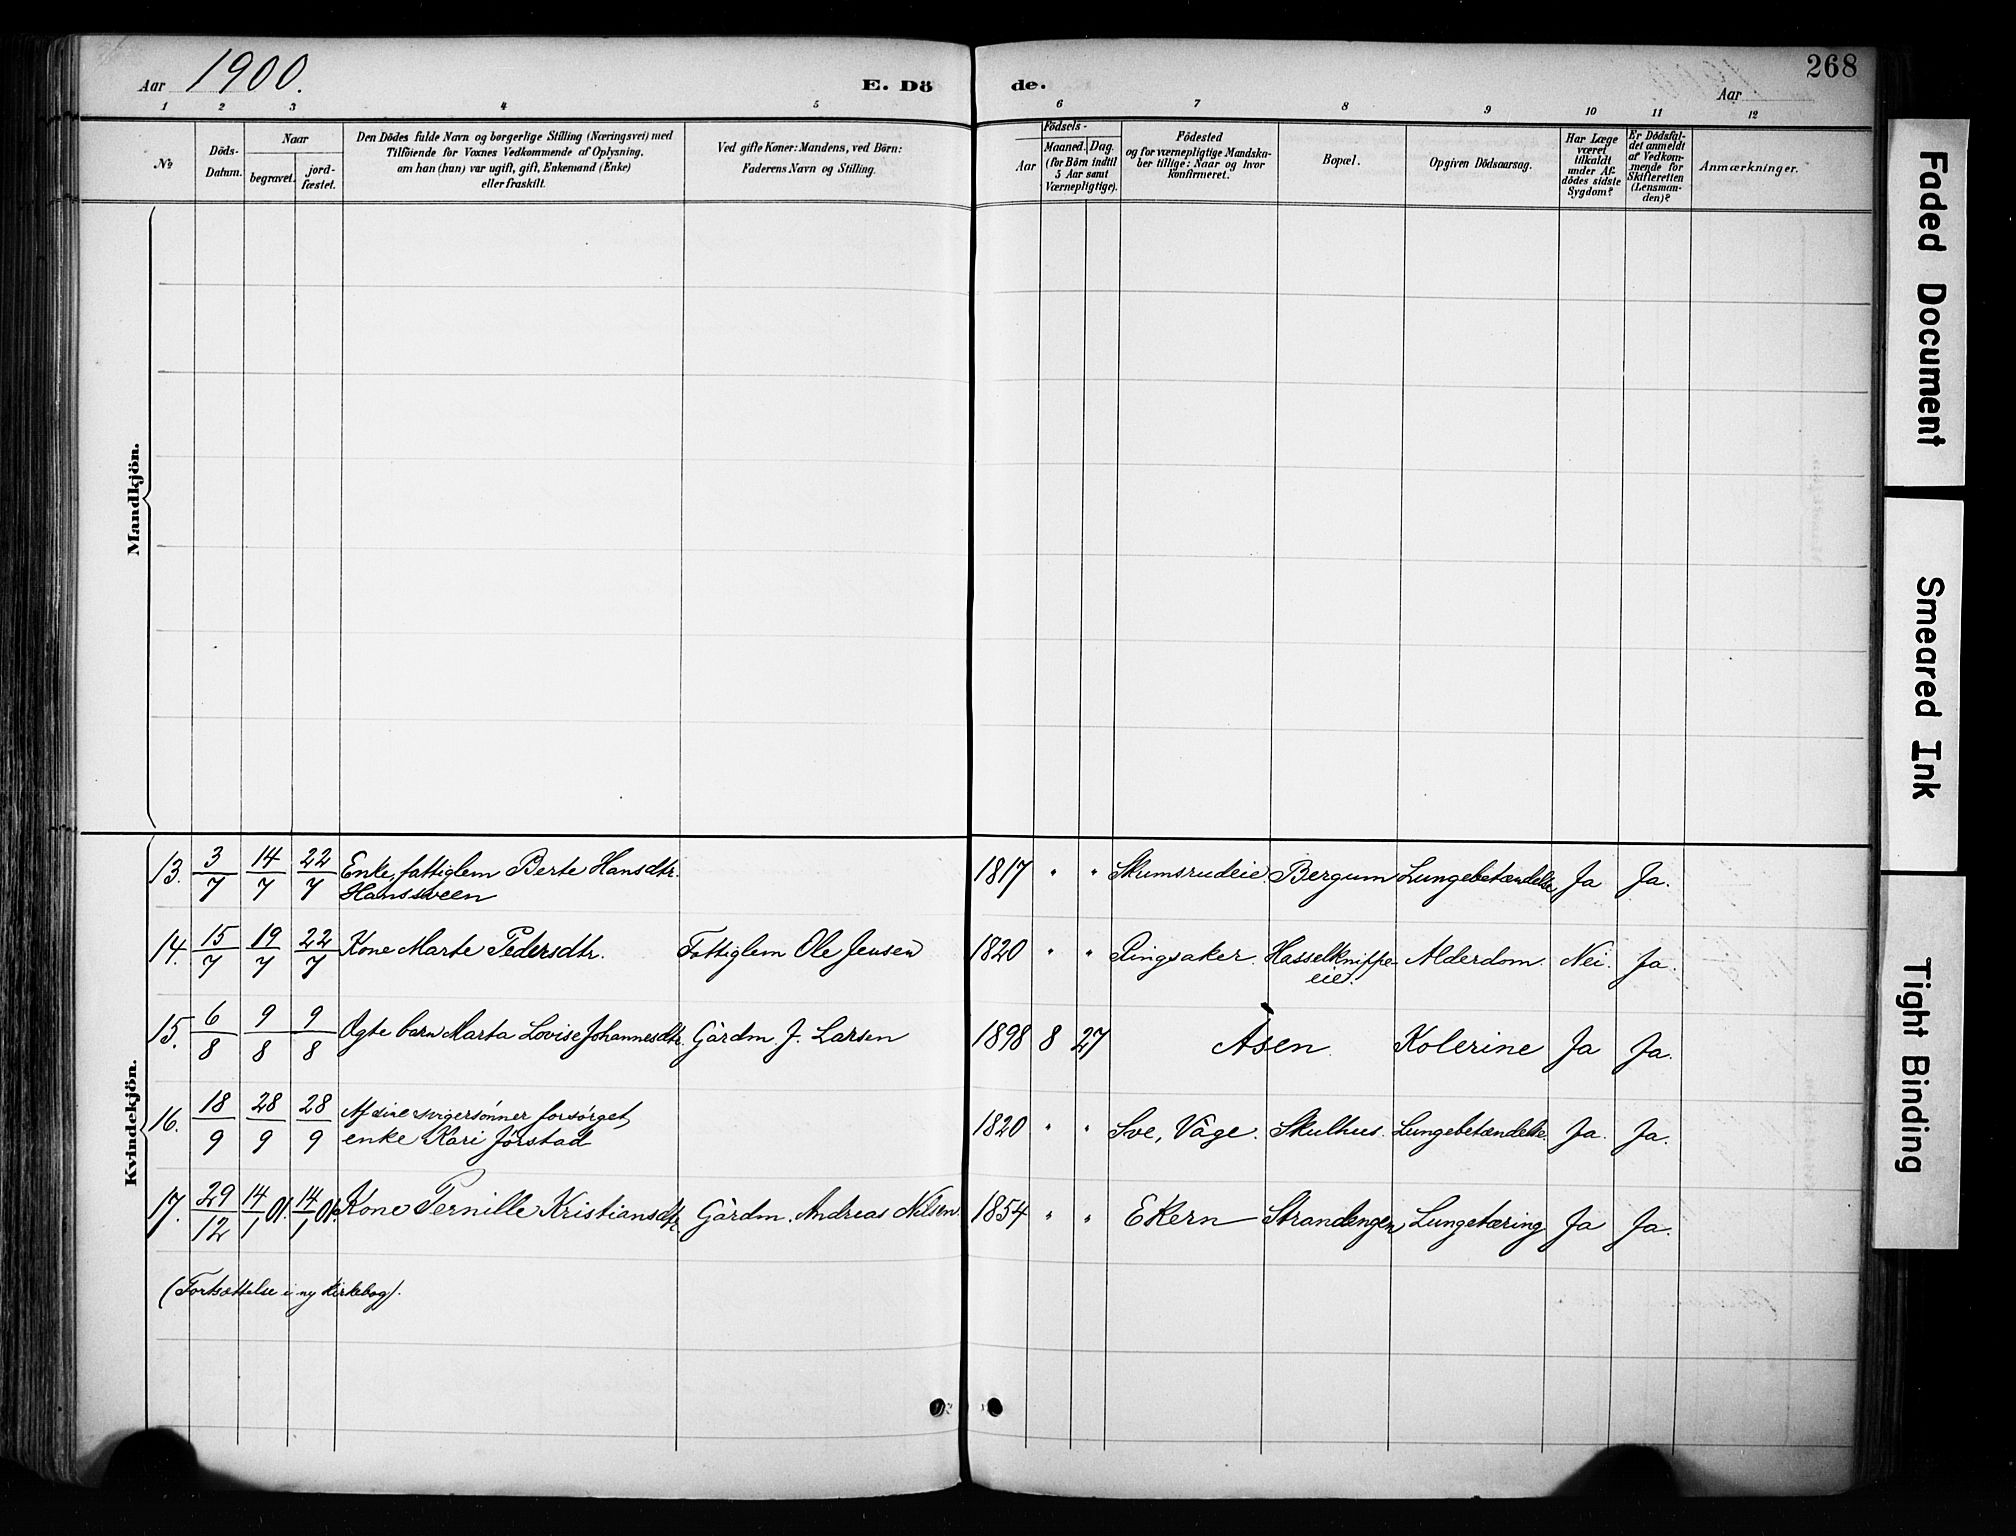 Aar 1900.
E. Dö
de.
Aar
268
1 2 3 4 5 6 7 8 9 10 11 12
№
Döds-
Datum.
Naar
begravet.
jord-
fæstet.
Den Dödes fulde Navn og borgerlige Stilling (Næringsvei) med
Tilföiende for Voxnes Vedkommende af Oplysning,
om han (hun) var ugift, gift, Enkemand (Enke)
eller fraskilt.
Ved gifte Koner: Mandens, ved Börn:
Faderens Navn og Stilling.
Födsels-
Aar
Maaned. Dag.
(for Börn indtil
5 Aar samt
Værnepligtige).
Födested
og for værnepligtige Mandska-
ber tillige: Naar og hvor
konfirmeret.
Bopæl.
Opgiven Dödsaarsag.
Har Læge
været
tilkaldt
under Af-
dödes sidste
Sygdom?
Er Dödsfal-
det anmeldt
af Vedkom-
mende for
Skifteretten
(Lensman-
den)?
Anmærkninger.
Mandkjön.
Kvindekjön.
13. 3/7 14/7 22/7 Enke, fattiglem Berte Hansdtr. 1817 " " Skumsrudeie. Bergum Lungebetændelse Ja Ja.
Hanssveen
14. 15/7 19/7 22/7 Kone Marte Pedersdtr. Fattiglem Ole Jensen 1820 " " Ringsaker. Hasselknippe- Alderdom. Nei. Ja.
eie.
15. 6/8 9/8 9/8 Ægte barn Marta Lovise Johannesdtr. Gårdm. J. Larsen 1898 8 27 Åsen Kolerine Ja Ja.
16. 18/9 28/9 28/9 Af sine svigersønner forsørget, 1820 " " Sve, Våge. Skulhus. Lungebetændelse. Ja. Ja.
enke Kari Jørstad
17. 29/12 14/1 01. 14/1 01. Kone Pernille Kristiansdtr. Gårdm. Andreas Nilsen. 1854 " " Ekern Strandengen Lungetæring Ja Ja.
(Fortsættelse i ny kirkebog).
Faded Document
Smeared Ink
Tight Binding